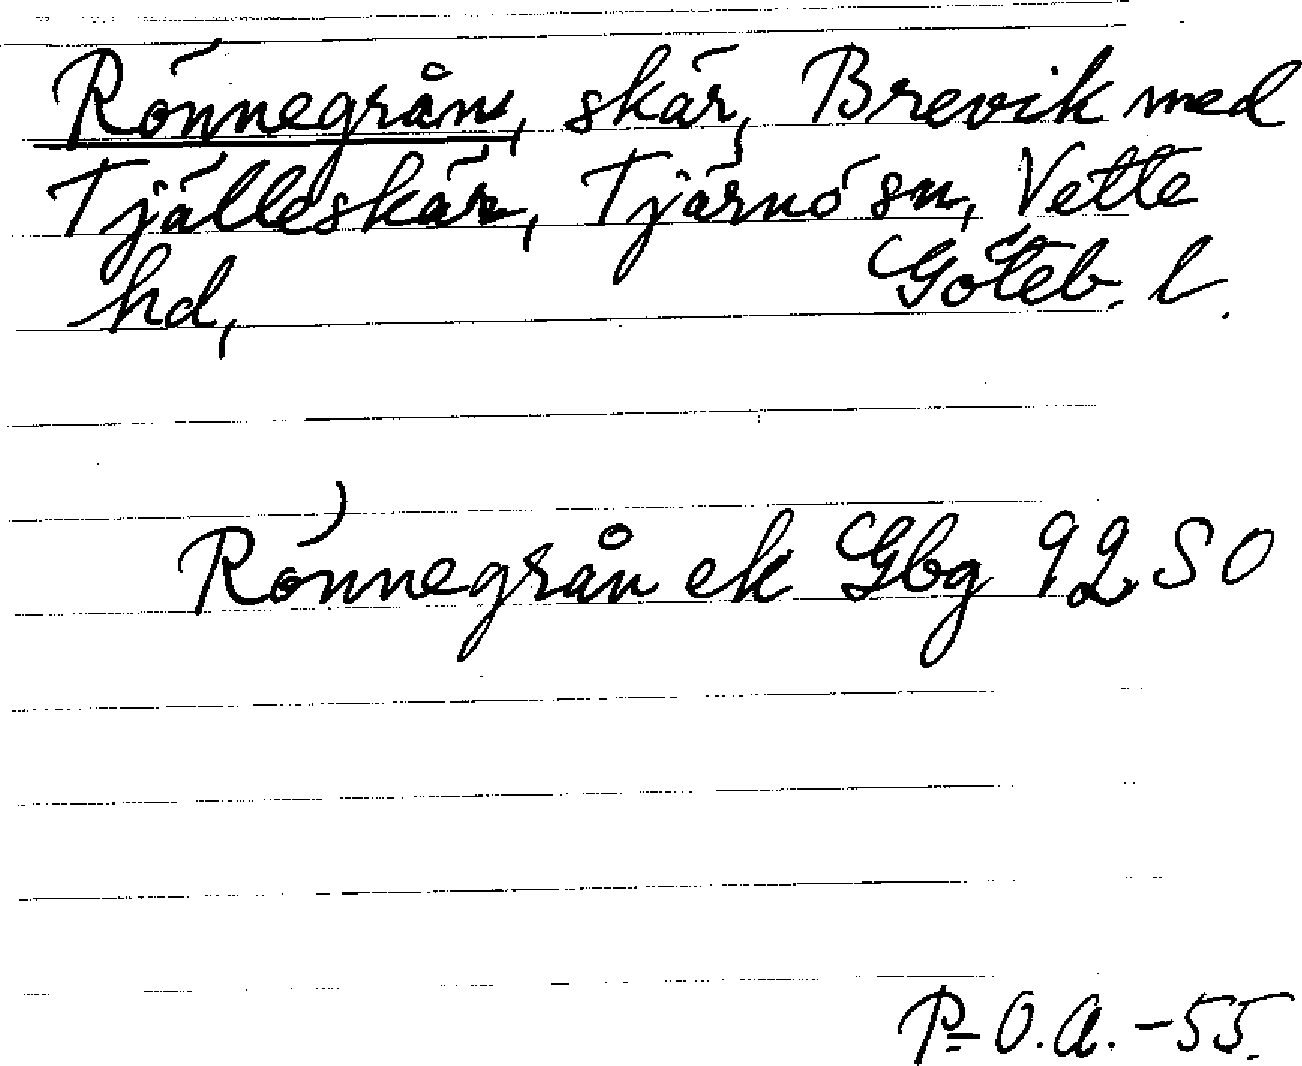 Rönnegrån, skär, Brevik med
Tjälleskär, Tjärnö sn, Vette
hd, Göteb. l.
Rönnegrån ek Gbg 92 SO
P-O.A. -55.